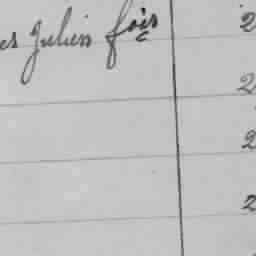 es Julien fois 2
2
2
2